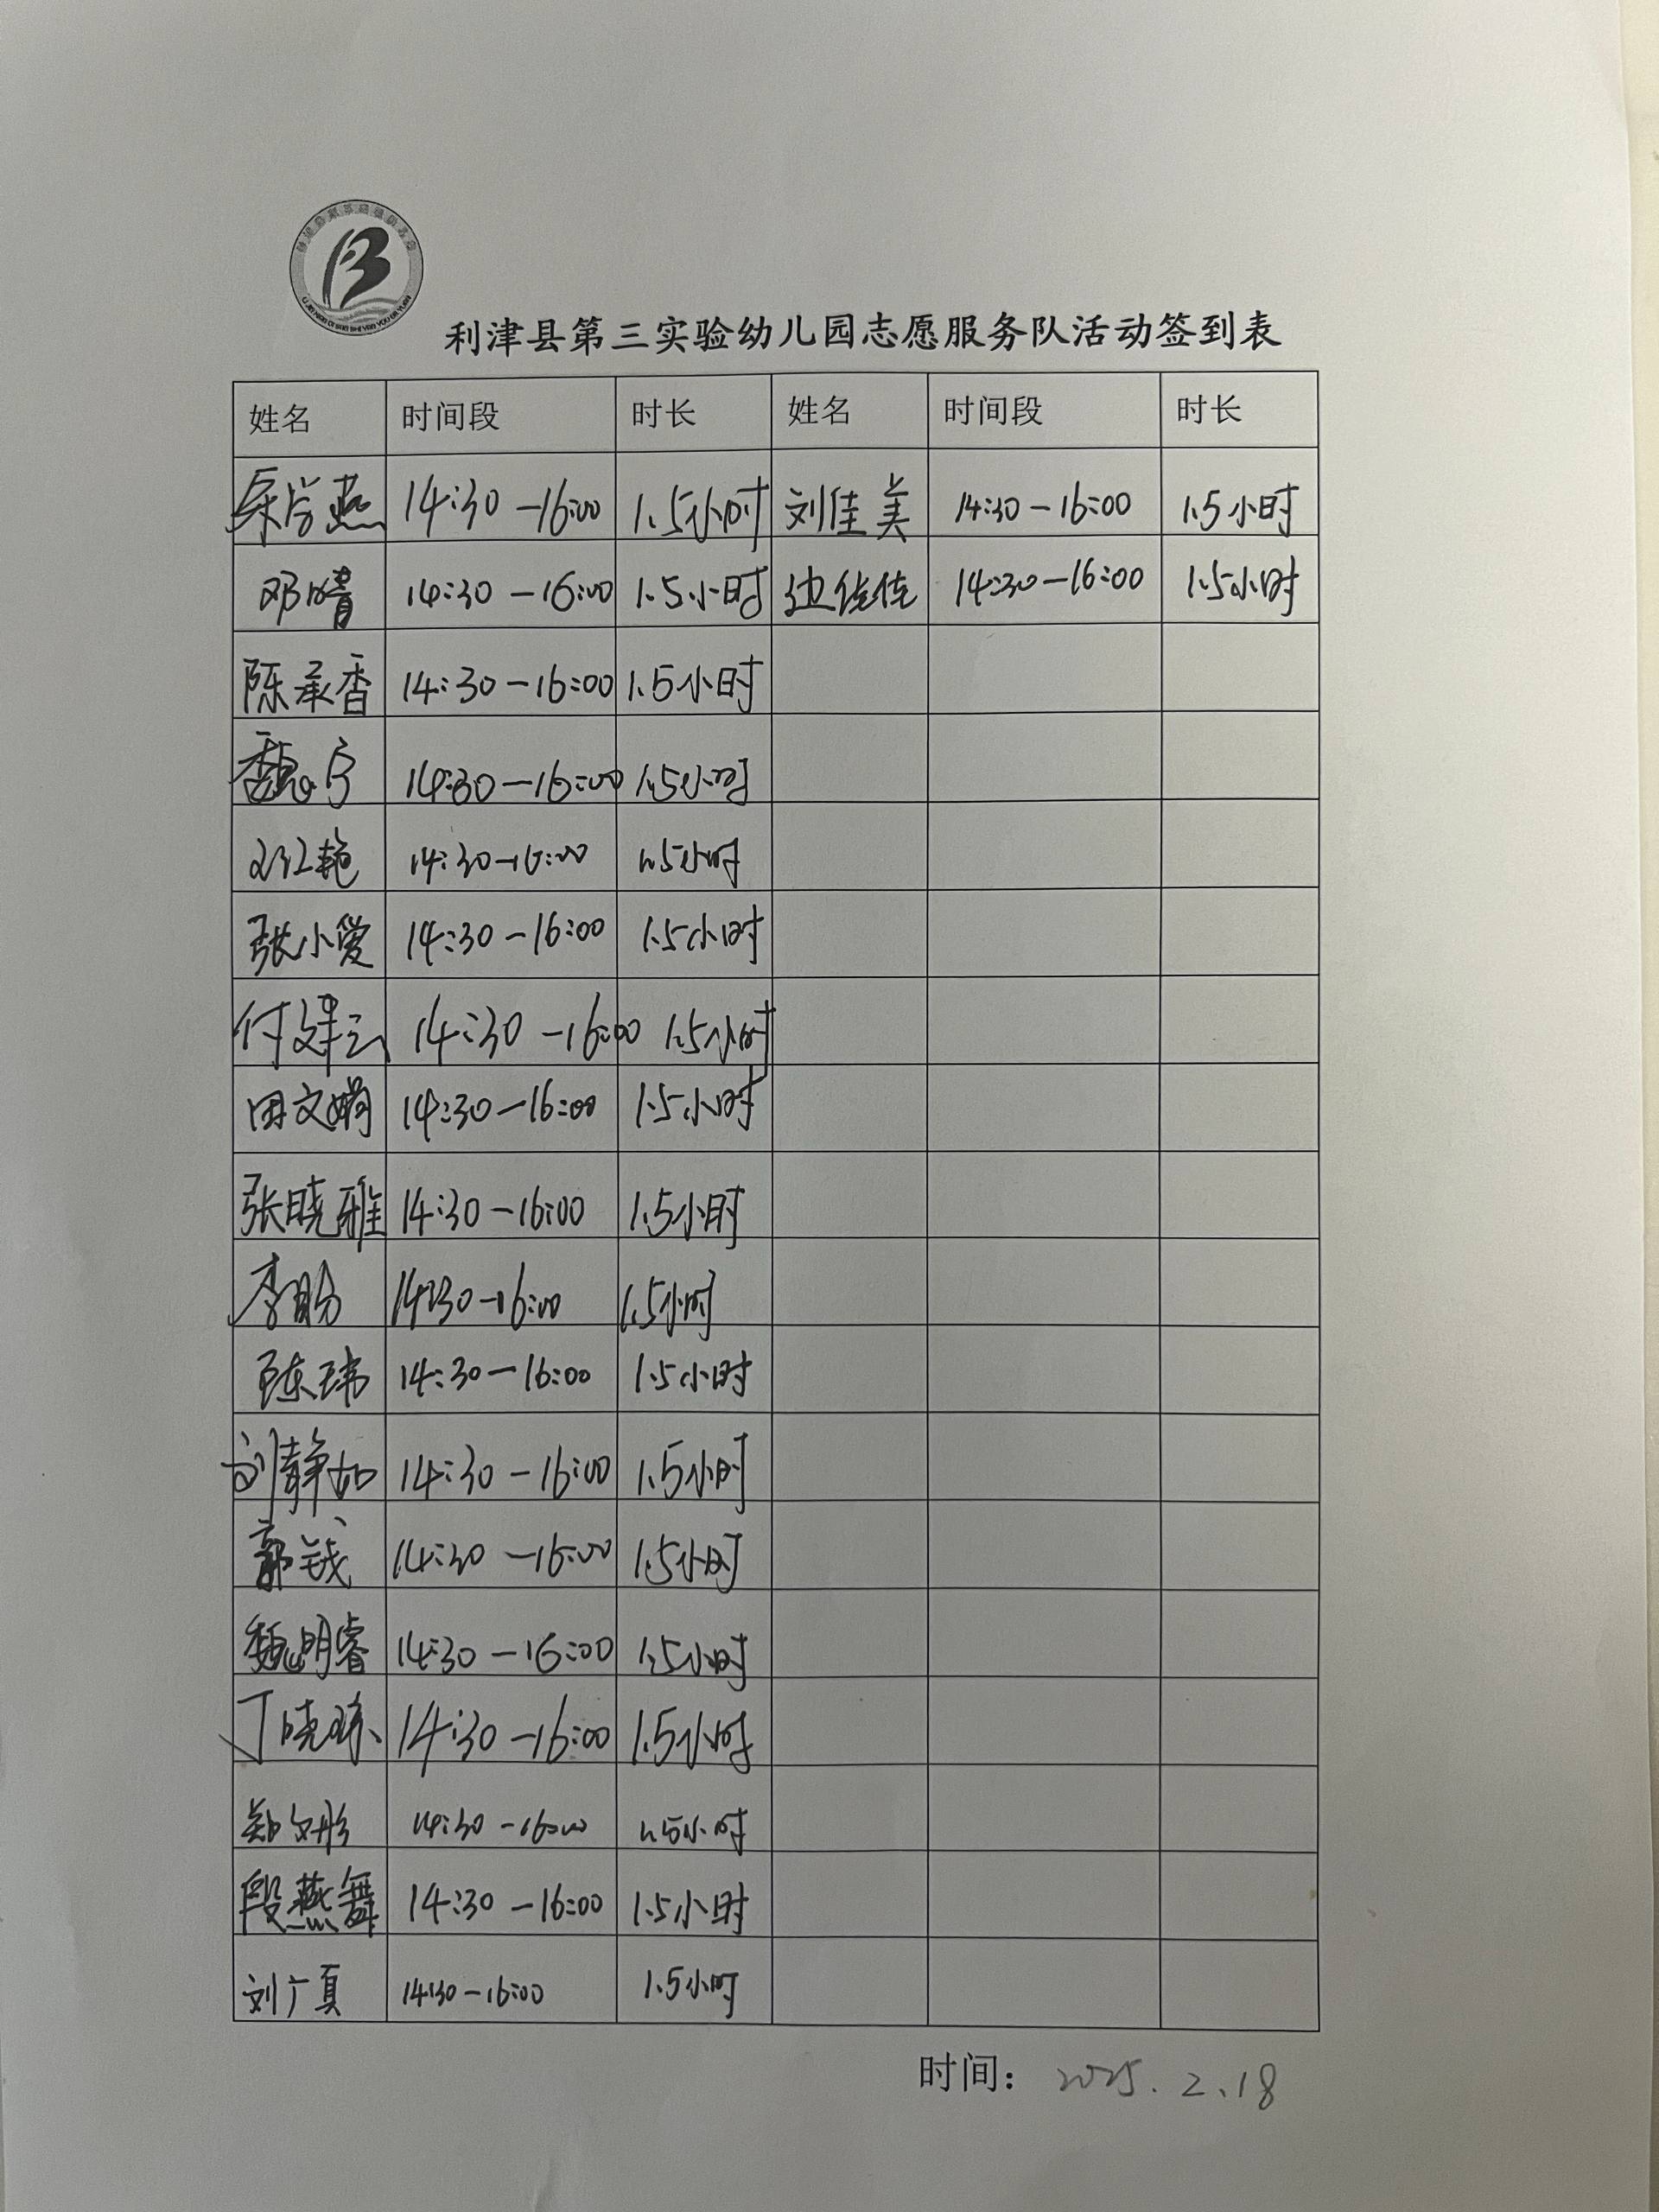 利津县第三实验幼儿园志愿服务队活动签到表
姓名 时间段 时长 姓名 时间段 时长
燕 14:30-16:00 1.5小时 刘佳美 14:30-16:00 1.5小时
邓晴 14:30-16:00 1.5小时 边佳佳 14:30-16:00 1.5小时
陈承香 14:30-16:00 1.5小时
魏宁 14:30-16:00 1.5小时
红艳 14:30-16:00 1.5小时
张小爱 14:30-16:00 1.5小时
付建云 14:30-16:00 1.5小时
田文娟 14:30-16:00 1.5小时
张晓雅 14:30-16:00 1.5小时
李盼 14:30-16:00 1.5小时
陈玮 14:30-16:00 1.5小时
刘静如 14:30-16:00 1.5小时
郭钱 14:30-16:00 1.5小时
魏明睿 14:30-16:00 1.5小时
丁晓琳 14:30-16:00 1.5小时
郑文彤 14:30-16:00 1.5小时
段燕舞 14:30-16:00 1.5小时
刘广真 14:30-16:00 1.5小时
时间：2025.2.18